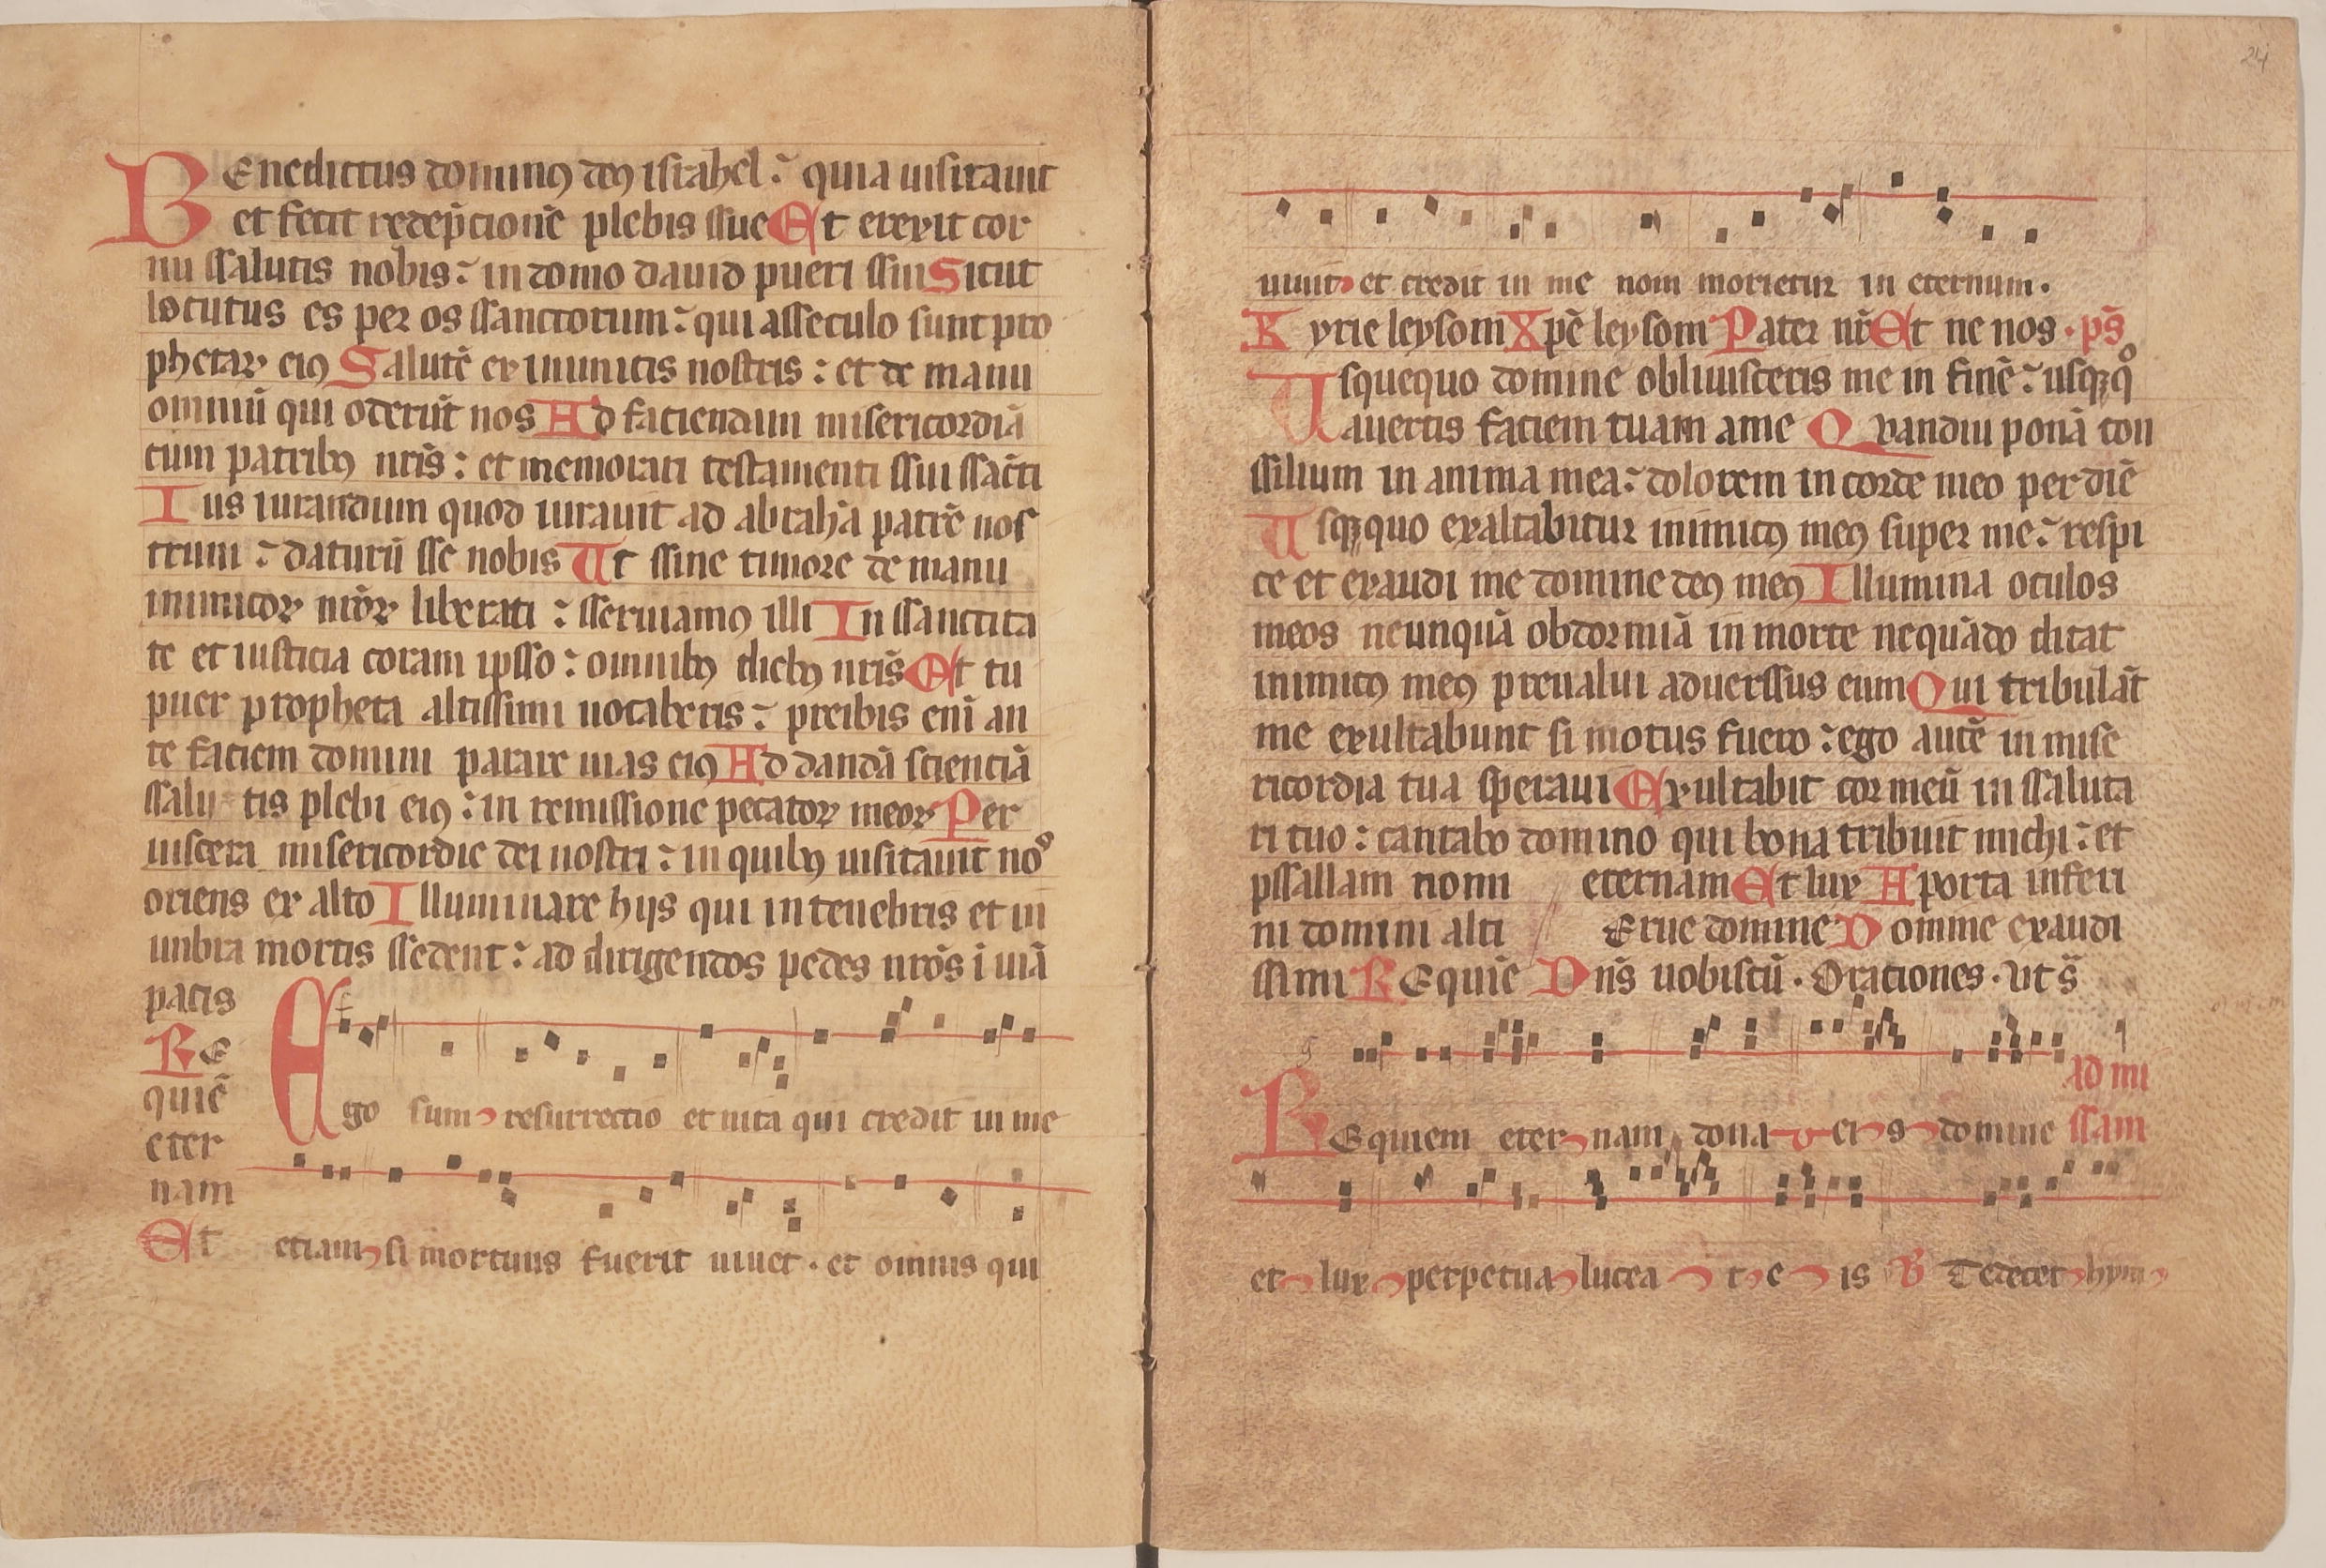 Benedictus dominꝰ deꝰ israhel: quia uisitauit
et fecit redēpcionē plebis ssue Et erexit cor
nu ssalutis nobis: in domo dauid pueri ssui Sicut
locutus es per os ssanctorum: qui asseculo sunt pro
phetaꝝ eiꝰ Salutē ex inimicis nostris: et de manu
omniū qui oderūt nos Ad faciendum misericordiā
cum patribꝰ nr̄is: et memorari testamenti ssui ssācti
Ius iurandum quod iurauit ad abrahā patrē nos
trum: daturū sse nobis Ut ssine timore de manu
inimicoꝝ nr̄oꝝ liberati: sseruiamꝰ illi In ssanctita
te et iusticia coram ipsso: omnibꝰ diebꝰ nr̄is Et tu
puer propheta altissimi uocaberis: preibis enī an
te faciem domini parare uias eiꝰ Ad dandā scienciā
ssalutis plebi eiꝰ: in remissione pecatoꝝ meoꝝ Per
uiscera misericordie dei nostri: in quibꝰ uisitauit nos
oriens ex alto Illuminare hijs qui in tenebris et in
unbra mortis ssedent: ad dirigendos pedes nr̄os ī uiā
pacis
Re
quiē
eter
nam
Et
Ego sum resurrectio et uita qui credit in me
etiam si mortuus fuerit uiuet. et omnis qui
24
uiuit et credit in me nom morietur in eternum.
Kyrie leysom Xpē leysom Pater nr̄ Et ne nos. ps̄
Usquequo domine obliuisceris me in finē: usqꝫqº
auertis faciem tuam ame Qvandiu ponā con
ssilium in anima mea: dolorem in corde meo per diē
Usqꝫquo exaltabitur inimicꝰ meꝰ super me: respi
ce et exaudi me domine deꝰ meꝰ Illumina oculos
meos neunquā obdormiā in morte nequādo dicat
inimicꝰ meꝰ preualui aduerssus eum Qui tribulāt
me exultabunt si motus fuero: ego autē in mise
ricordia tua speraui Exultabit cor meū in ssaluta
ri tuo: cantabo domino qui bona tribuit michi: et
pssallam nomi // eternam Et lux A porta inferi
ni domini alti // Erue domine Domine exaudi
ssimi Requiē Dn̄s uobiscū. Orationes. ut s̄
ad mi
Requiem eternam dona eis domine ssam
et lux perpetua lucea t e is V Te decet hym